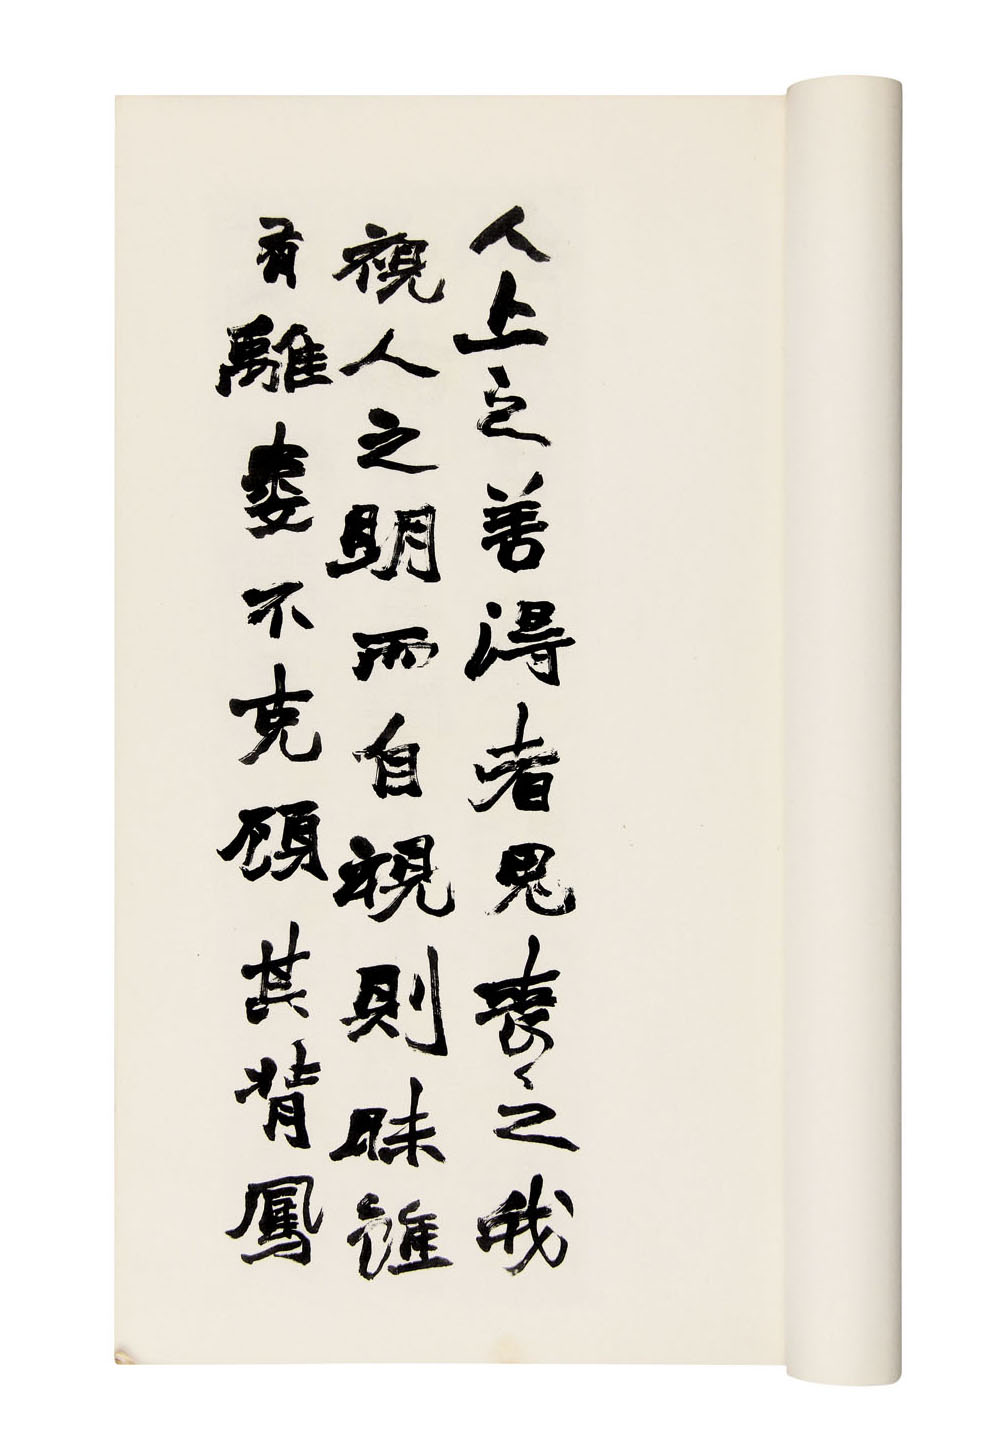 人上之善得者喪之我
視人之明而自視則昧雖
有離婁不克顧其背鳳